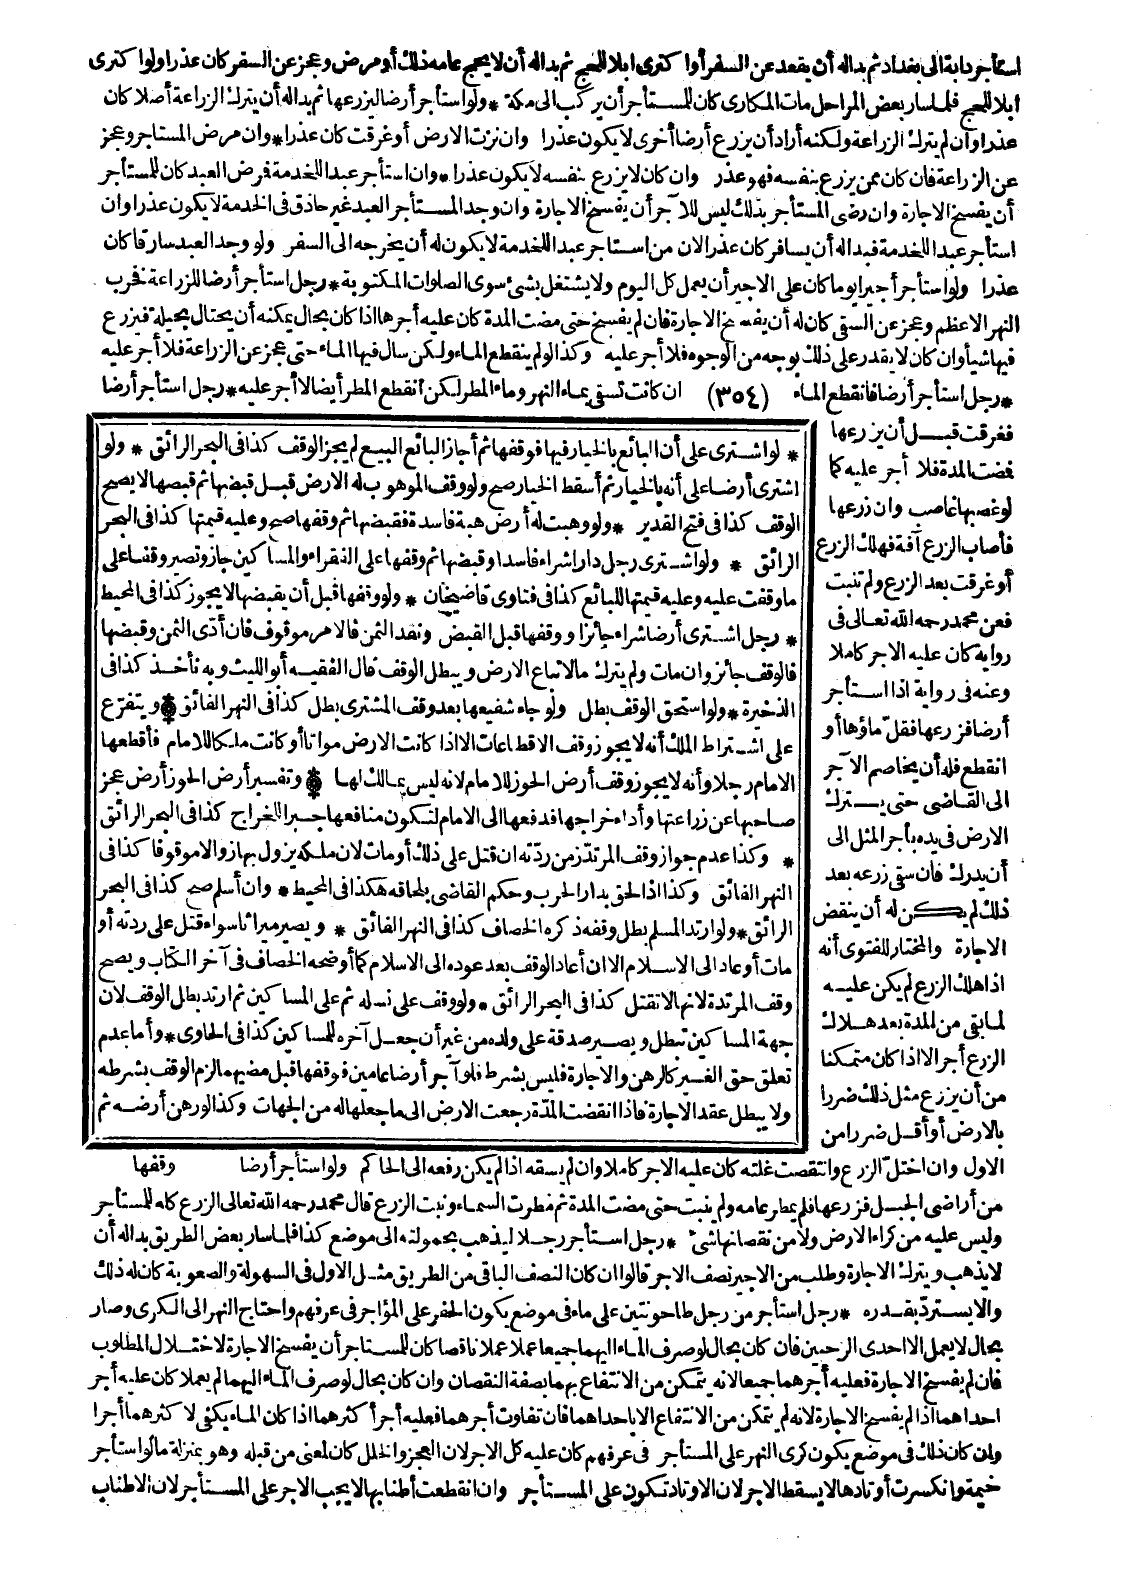 استأجر دابة الى بغداد ثم بدا له أن يقعد عن السفر أو اكترى ابلا للحج ثم بدا له أن لا يحج عامه ذلك أو مرض وعجز عن السفر كان عذرا ولو اكترى
ابلا للحج فلما سار بعض المراحل مات المكارى كان للمستأجر أن يركب الى مكة * ولو استأجر أرضا ليزرعها ثم بدا له أن يترك الزراعة أصلا كان
عذرا وان لم يترك الزراعة ولكنه أراد أن يزرع أرضا أخرى لا يكون عذرا وان نزت الارض أو غرقت كان عذرا * وان مرض المستأجر وعجز
عن الزراعة فان كان ممن يزرع بنفسه فهو عذر وان كان لا يزرع بنفسه لا يكون عذرا * وان استأجر عبدا للخدمة فمرض العبد كان للمستأجر
أن يفسخ الاجارة وان رضى المستأجر بذلك ليس للآجر أن يفسخ الاجارة وان وجد المستأجر العبد غير حاذق فى الخدمة لا يكون عذرا وان
استأجر عبدا للخدمة فبدا له أن يسافر كان عذرا لان من استأجر عبدا للخدمة لا يكون له أن يخرجه الى السفر ولو وجد العبد سارقا كان
عذرا ولو استأجر أجيرا يوما كان على الاجير أن يعمل كل اليوم ولا يشتغل بشئ سوى الصلوات المكتوبة * رجل استأجر أرضا للزراعة فخرب
النهر الاعظم وعجز عن السقى كان له أن يفسخ الاجارة فان لم يفسخ حتى مضت المدة كان عليه أجرها اذا كان بحال يمكنه أن يحتال بحيلة فيزرع
فيها شيأ وان كان لا يقدر على ذلك بوجه من الوجوه فلا أجر عليه وكذا لو لم ينقطع الماء ولكن سال فيها الماء حتى عجز عن الزراعة فلا أجر عليه
* رجل استأجر أرضا فانقطع الماء (٣٥٤) ان كانت تسقى بماء النهر وماء المطر لكن انقطع المطر أيضا لا أجر عليه * رجل استأجر أرضا
فغرقت قبل أن يزرعها
فمضت المدة فلا أجر عليه كما
لو غصبها غاصب وان زرعها
فأصاب الزرع آفة فهلك الزرع
أو غرقت بعد الزرع ولم تنبت
فعن محمد رحمه الله تعالى فى
رواية كان عليه الاجر كاملا
وعنه فى رواية اذا استأجر
أرضا فزرعها فقل ماؤها أو
انقطع فله أن يخاصم الآجر
الى القاضى حتى يترك
الارض فى يده بأجر المثل الى
أن يدرك فان سقى زرعه بعد
ذلك لم يكن له أن ينقض
الاجارة والمختار للفتوى أنه
اذا هلك الزرع لم يكن عليه
لما بقى من المدة بعد هلاك
الزرع أجر الا اذا كان متمكنا
من أن يزرع مثل ذلك ضررا
بالارض أو أقل ضررا من
* لو اشترى على أن البائع بالخيار فيها فوقفها ثم أجاز البائع البيع لم يجز الوقف كذا فى البحر الرائق * ولو
اشترى أرضا على أنه بالخيار ثم أسقط الخيار صح ولو وقف الموهوب له الارض قبل قبضها ثم قبضها لا يصح
الوقف كذا فى فتح القدير * ولو وهبت له أرض هبة فاسدة فقبضها ثم وقفها صح وعليه قيمتها كذا فى البحر
الرائق * ولو اشترى رجل دارا شراء فاسدا وقبضها ثم وقفها على الفقراء والمساكين جاز وتصير وقفا على
ما وقفت عليه وعليه قيمتها للبائع كذا فى فتاوى قاضيخان * ولو وقفها قبل أن يقبضها لا يجوز كذا فى المحيط
* رجل اشترى أرضا شراء جائزا ووقفها قبل القبض ونقد الثمن فالامر موقوف فان أدّى الثمن وقبضها
فالوقف جائز وان مات ولم يترك مالا تباع الارض ويبطل الوقف قال الفقيه أبو الليث وبه نأخذ كذا فى
الذخيرة * ولو استحق الوقف بطل ولو جاء شفيعها بعد وقف المشترى بطل كذا فى النهر الفائق * ويتفرّع
على اشتراط الملك أنه لا يجوز وقف الاقطاعات الا اذا كانت الارض مواتا أو كانت ملكا للامام فأقطعها
الامام رجلا وأنه لا يجوز وقف أرض الحوز للامام لانه ليس بمالك لها * وتفسير أرض الحوز أرض عجز
صاحبها عن زراعتها وأداء خراجها فدفعها الى الامام لتكون منافعها جبرا للخراج كذا فى البحر الرائق
* وكذا عدم جواز وقف المرتدّ زمن ردّته ان قتل على ذلك أو مات لان ملكه يزول بها زوالا موقوفا كذا فى
النهر الفائق وكذا اذا لحق بدار الحرب وحكم القاضى بلحاقه هكذا فى المحيط * وان أسلم صح كذا فى البحر
الرائق * ولو ارتد المسلم بطل وقفه ذكره الخصاف كذا فى النهر الفائق * ويصير ميراثا سواء قتل على ردته أو
مات أو عاد الى الاسلام الا ان أعاد الوقف بعد عوده الى الاسلام كما أوضحه الخصاف فى آخر الكتاب ويصح
وقف المرتدة لانها لا تقتل كذا فى البحر الرائق * ولو وقف على نسله ثم على المساكين ثم ارتد بطل الوقف لان
جهة المساكين تبطل ويصير صدقة على ولده من غير أن جعل آخره للمساكين كذا فى الحاوى * وأما عدم
تعلق حق الغير كالرهن والاجارة فليس بشرط فلو آجر أرضا عامين فوقفها قبل مضيهما لزم الوقف بشرطه
ولا يبطل عقد الاجارة فاذا انقضت المدّة رجعت الارض الى ما جعلها له من الجهات وكذا لو رهن أرضه ثم
وقفها
الاول وان اختلّ الزرع وانتقصت غلته كان عليه الاجر كاملا وان لم يسقه اذا لم يكن رفعه الى الحاكم ولو استأجر أرضا
من أراضى الجبل فزرعها فلم يمطر عامه ولم ينبت حتى مضت المدة ثم مطرت السماء ونبت الزرع قال محمد رحمه الله تعالى الزرع كله للمستأجر
وليس عليه من كراء الارض ولا من نقصانها شئ * رجل استأجر رجلا ليذهب بحمولة الى موضع كذا فلما سار بعض الطريق بدا له أن
لا يذهب ويترك الاجارة وطلب من الاجير نصف الاجر قالوا ان كان النصف الباقى من الطريق مثل الاول فى السهولة والصعوبة كان له ذلك
والا يستردّ بقدره * رجل استأجر من رجل طاحونتين على ماء فى موضع يكون الحفر على المؤاجر فى عرفهم واحتاج النهر الى الكرى وصار
بحال لا يعمل الا احدى الرحيين فان كان بحال لو صرف الماء اليهما جميعا عملا عملا ناقصا كان للمستأجر أن يفسخ الاجارة لاختلال المطلوب
فان لم يفسخ الاجارة فعليه أجرهما جميعا لانه يتمكن من الانتفاع بهما بصفة النقصان وان كان بحال لو صرف الماء اليهما لم يعملا كان عليه أجر
احداهما اذا لم يفسخ الاجارة لانه لم يتمكن من الانتفاع الا باحداهما فان تفاوت أجرهما فعليه أجر أكثرهما اذا كان الماء يكفى لاكثرهما أجرا
وان كان ذلك فى موضع يكون كرى النهر على المستأجر فى عرفهم كان عليه كل الاجر لان العجز والخلل كان لمعنى من قبله وهو بمنزلة ما لو استأجر
خيمة وانكسرت أوتادها لا يسقط الاجر لان الاوتاد تكون على المستأجر وان انقطعت أطنابها لا يجب الاجر على المستأجر لان الاطناب